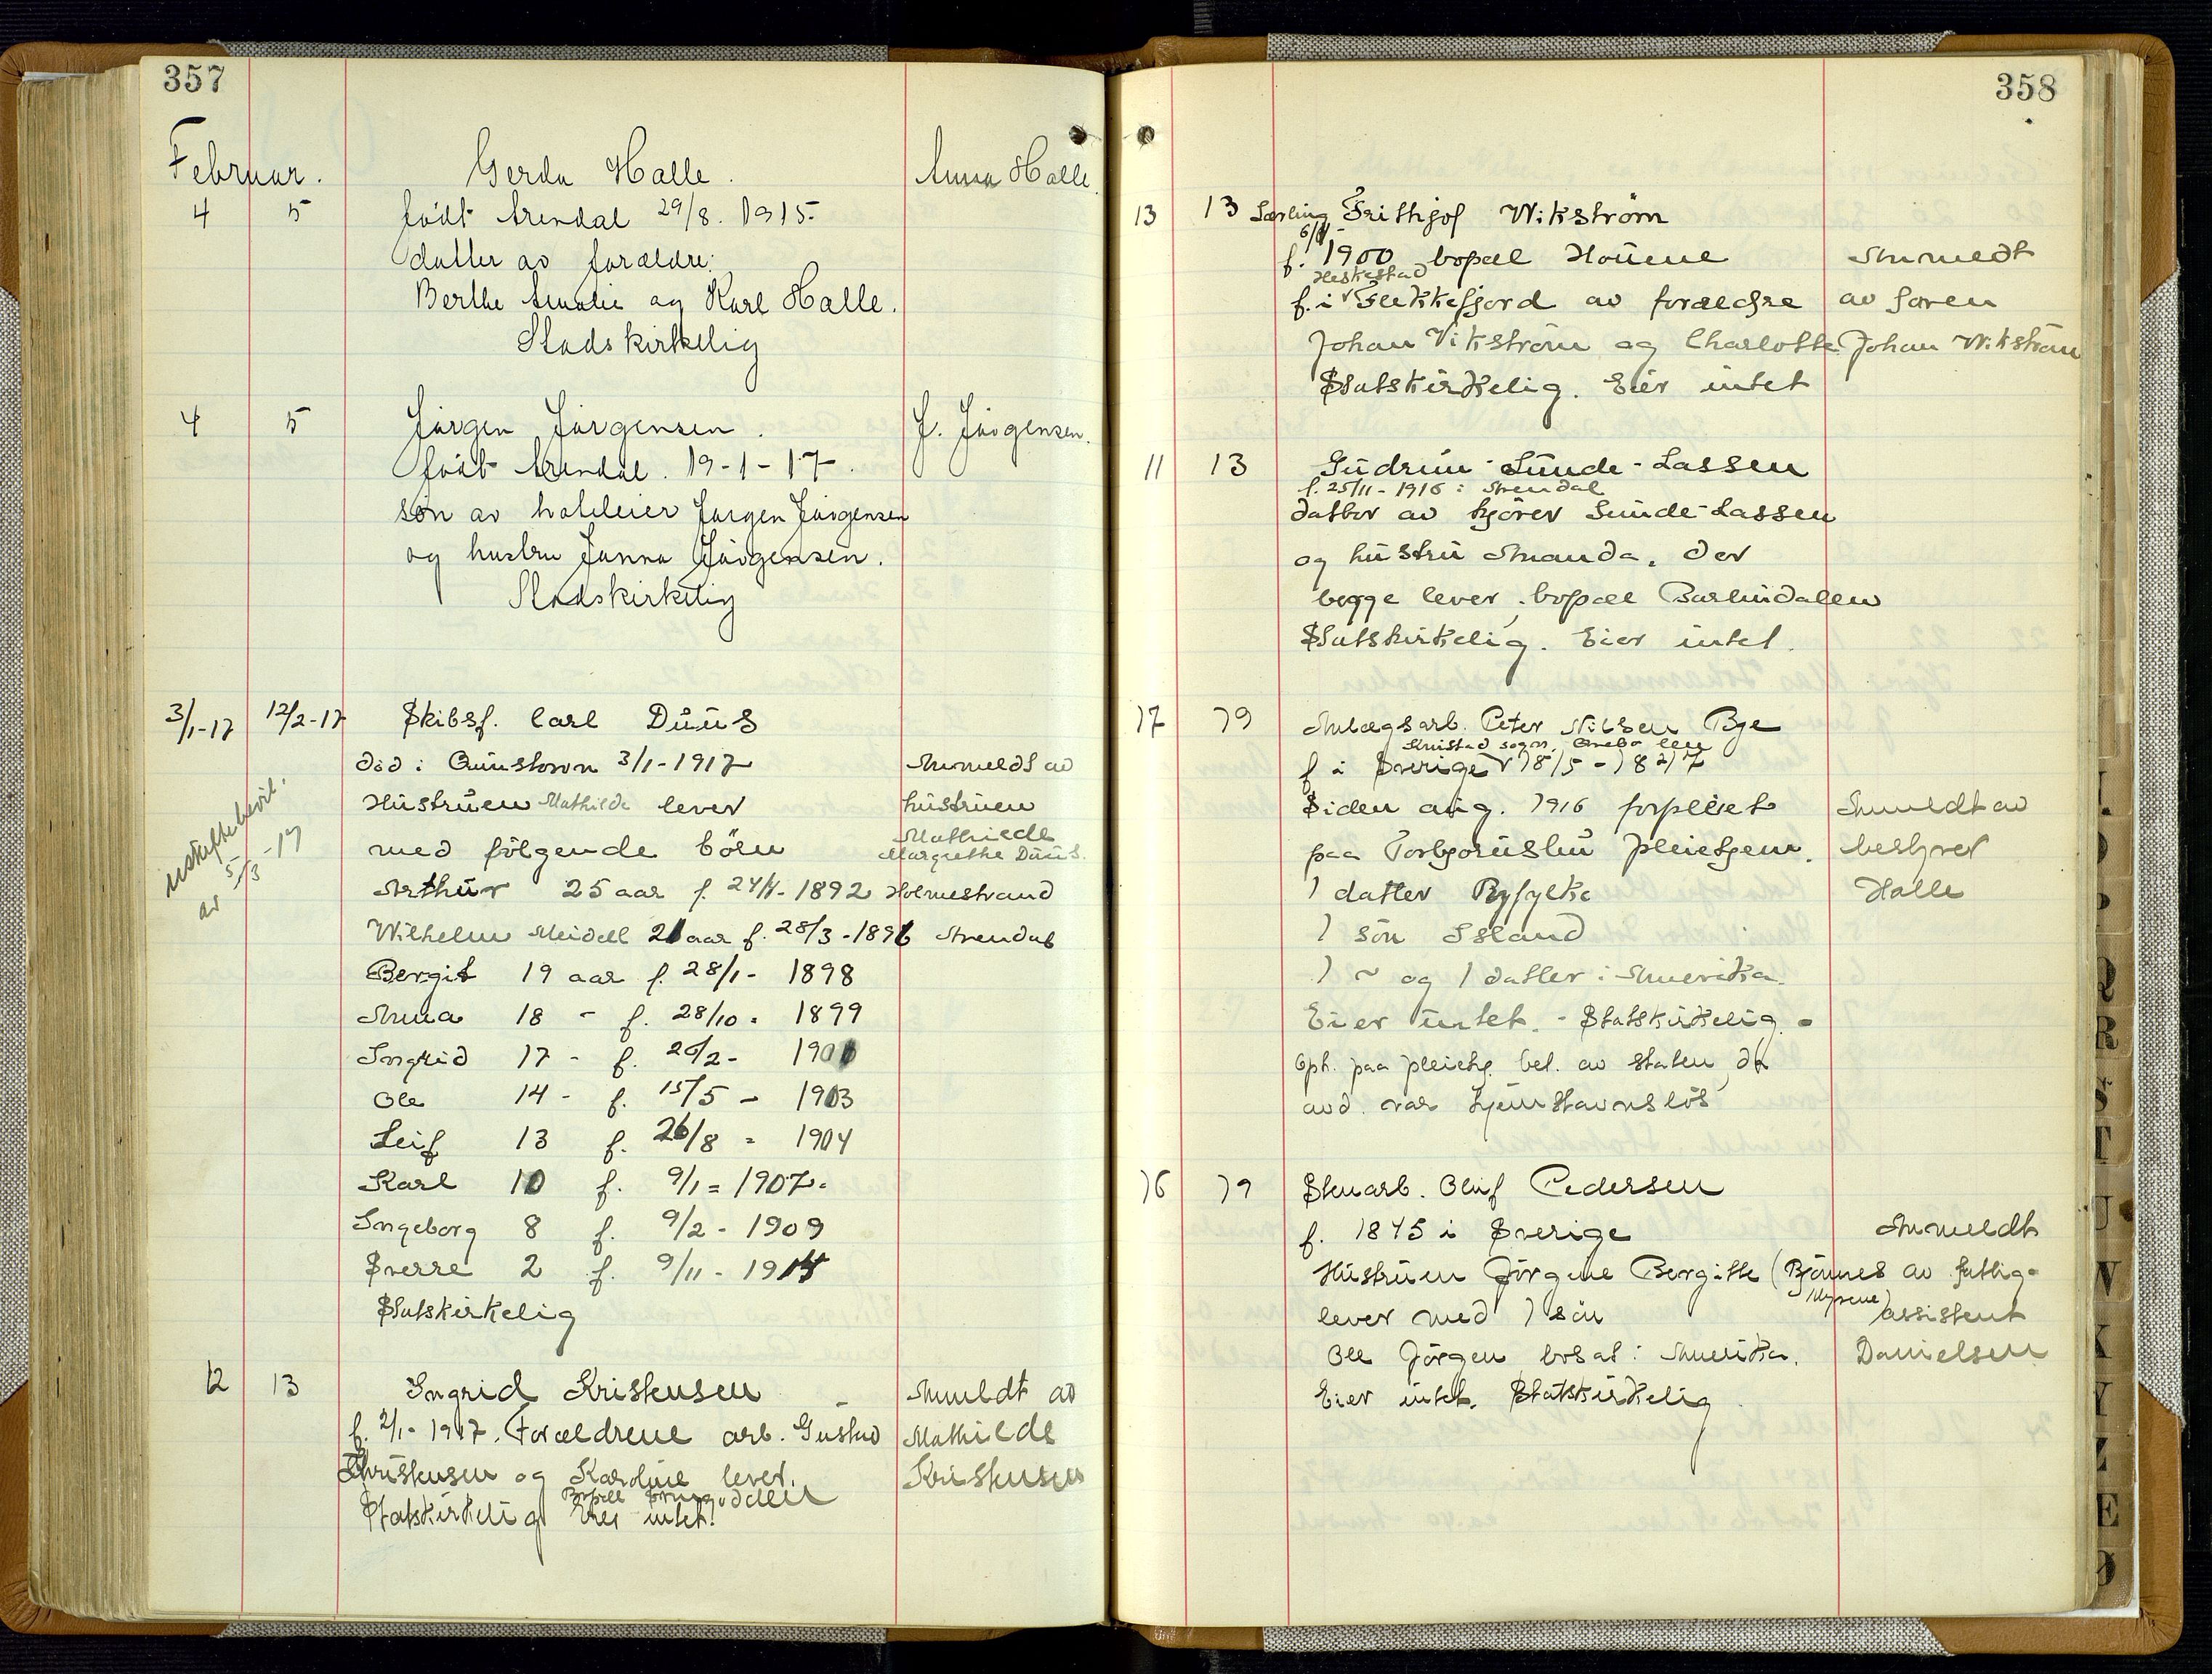 357
Februar.
Gerda Halle.
Anna Halle.
4 5 født Arendal 29/8. 1915
datter av forældre:
Berthe Amalie og Karl Halle.
Stadskirkelig
4 5 Jørgen Jørgensen.
J. Jørgensen.
født Arendal. 19-1-17.
søn av hoteleier Jørgen Jørgensen
og hustru Janna Jørgensen.
Stadskirkelig
3/1-17 12/2-17 Skibsf. Carl Duus
død i 3/1-1917
Anmeldt av
Hustruen Mathilde lever
hustruen
med følgende børn
Mathilde
Margrethe Duus.
av 5/3-17
Arthur 25 aar f. 24/4-1892 Holmestrand
Wilhelm Meidell 21 aar f. 28/3-1896 Arendal
Bergit 19 aar f. 28/1- 1898
Anna 18 - f. 28/10 - 1899
Ingrid 17 - f. 26/2- 1900
Ole 14 - f. 15/5 - 1903
Leif 13 f. 26/8 - 1904
Karl 10 f. 9/1 = 1907.
Ingeborg 8 f. 9/2 - 1909
Sverre 2 f. 9/11 - 1914
Statskirkelig
12 13 Ingrid Kristensen
Anmeldt av
f. 2/1-1917. Forældrene arb. Gustav
Mathilde
Kristensen og Karoline lever.
Kristensen
Bopæl
Statskirkelig Eier intet.
358
13 13 Lærling Frithjof Wikstrøm
6/11
f. 1900 bopæl
Anmeldt
Heskestad
f. i Flekkefjord av forældre
av faren
Johan Vikstrøm og Charlotte
Johan Wikstrøm
Statskirkelig. Eier intet
11 13 Gudrun Sunde-Lassen
f. 25/11-1916 i Arendal
datter av kjører Sunde-Lassen
og hustru Amanda, der
begge lever, bopæl Barbudalen
Statskirkelig. Eier intet.
17 19 Anlægsarb. Peter Nilsen Bye
sogn, Ørebo len
f i Sverige 18/5-1827
Siden aug. 1916 forpleiet
Anmeldt av
paa Torbjørnsbu pleiehjem.
bestyrer
1 datter Ryfylke
Halle
1 søn Island
1 ~ og 1 datter i Amerika.
Eier intet. - Statskirkelig.
Oph. paa pleiehj. bet. av staten, da
avd. var hjemstavnsløs
16 19 Stenarb. Oluf Pedersen
f. 1845 i Sverige
Anmeldt
Hustruen Jørgine Bergitte (Bjønnes
Myrene)
av fattig-
lever med 1 søn
assistent
Ole Jørgen bosat i Amerika.
Danielsen
Eier intet. Statskirkelig